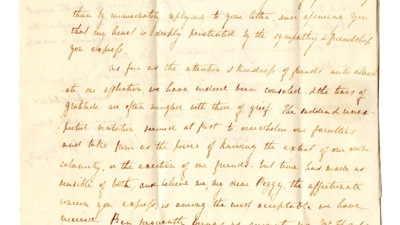 than by immediately replying to your letter and assuring you
that my heart is deeply penetrated by the sympathy & friendship
you express.
As far as the attention & kindness of friends could allevi
ate our affliction we have indeed been consoled & the tears of
gratitude are often mingled with those of grief. The sudden & unex-
pected visitation seemed at first to overwhelm our faculties
and take from us the power of knowing the extent of our own
calamity, or the exertion of our friends. but time has made us
sensible of both, and believe me, my dear Peggy, the affectionate
concern you express, is among the most acceptable we have
received. Ben frequently